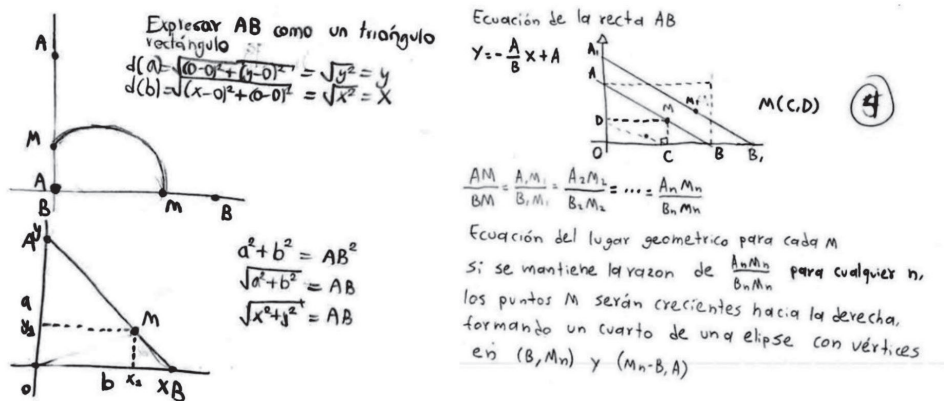 A
Expresar AB como un triángulo
rectángulo
d(a)=√(0-0)²+(y-0)² = √y² = y
d(b)=√(x-0)²+(0-0)² = √x² = x
M
A
B
M
B
a²+b² = AB²
√a²+b² = AB
√x²+y² = AB
A
y
a
y₁
M
0
b
x₁
x
B
Ecuación de la recta AB
Y=-A/B X+A
A₁
A
D
M
M₁
0
C
B
B₁
M(C,D)
4
AM/BM = A₁M₁/B₁M₁ = A₂M₂/B₂M₂ = .... = AnMn/BnMn
Ecuación del lugar geometrico para cada M
si se mantiene la razon de AnMn/BnMn para cualquier n,
los puntos M serán crecientes hacia la derecha,
formando un cuarto de una elipse con vértices
en (B,Mn) y (Mn-B,A)